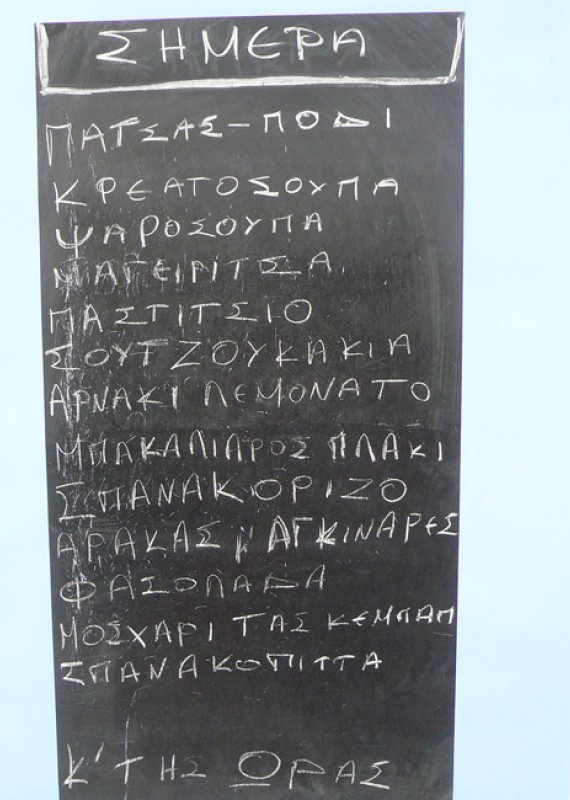 ΣΗΜΕΡΑ
ΠΑΤΣΑΣ-ΠΟΔΙ
ΚΡΕΑΤΟΣΟΥΠΑ
ΨΑΡΟΣΟΥΠΑ
ΜΑΓΕΙΡΙΤΣΑ
ΠΑΣΤΙΤΣΙΟ
ΣΟΥΤΖΟΥΚΑΚΙΑ
ΑΡΝΑΚΙ ΛΕΜΟΝΑΤΟ
ΜΠΑΚΑΛΙΑΡΟΣ ΠΛΑΚΙ
ΣΠΑΝΑΚΟΡΙΖΟ
ΑΡΑΚΑΣ μ' ΑΓΚΙΝΑΡΕΣ
ΦΑΣΟΛΑΔΑ
ΜΟΣΧΑΡΙ ΤΑΣ ΚΕΜΠΑΠ
ΣΠΑΝΑΚΟΠΙΤΤΑ
Κ' ΤΗΣ ΩΡΑΣ